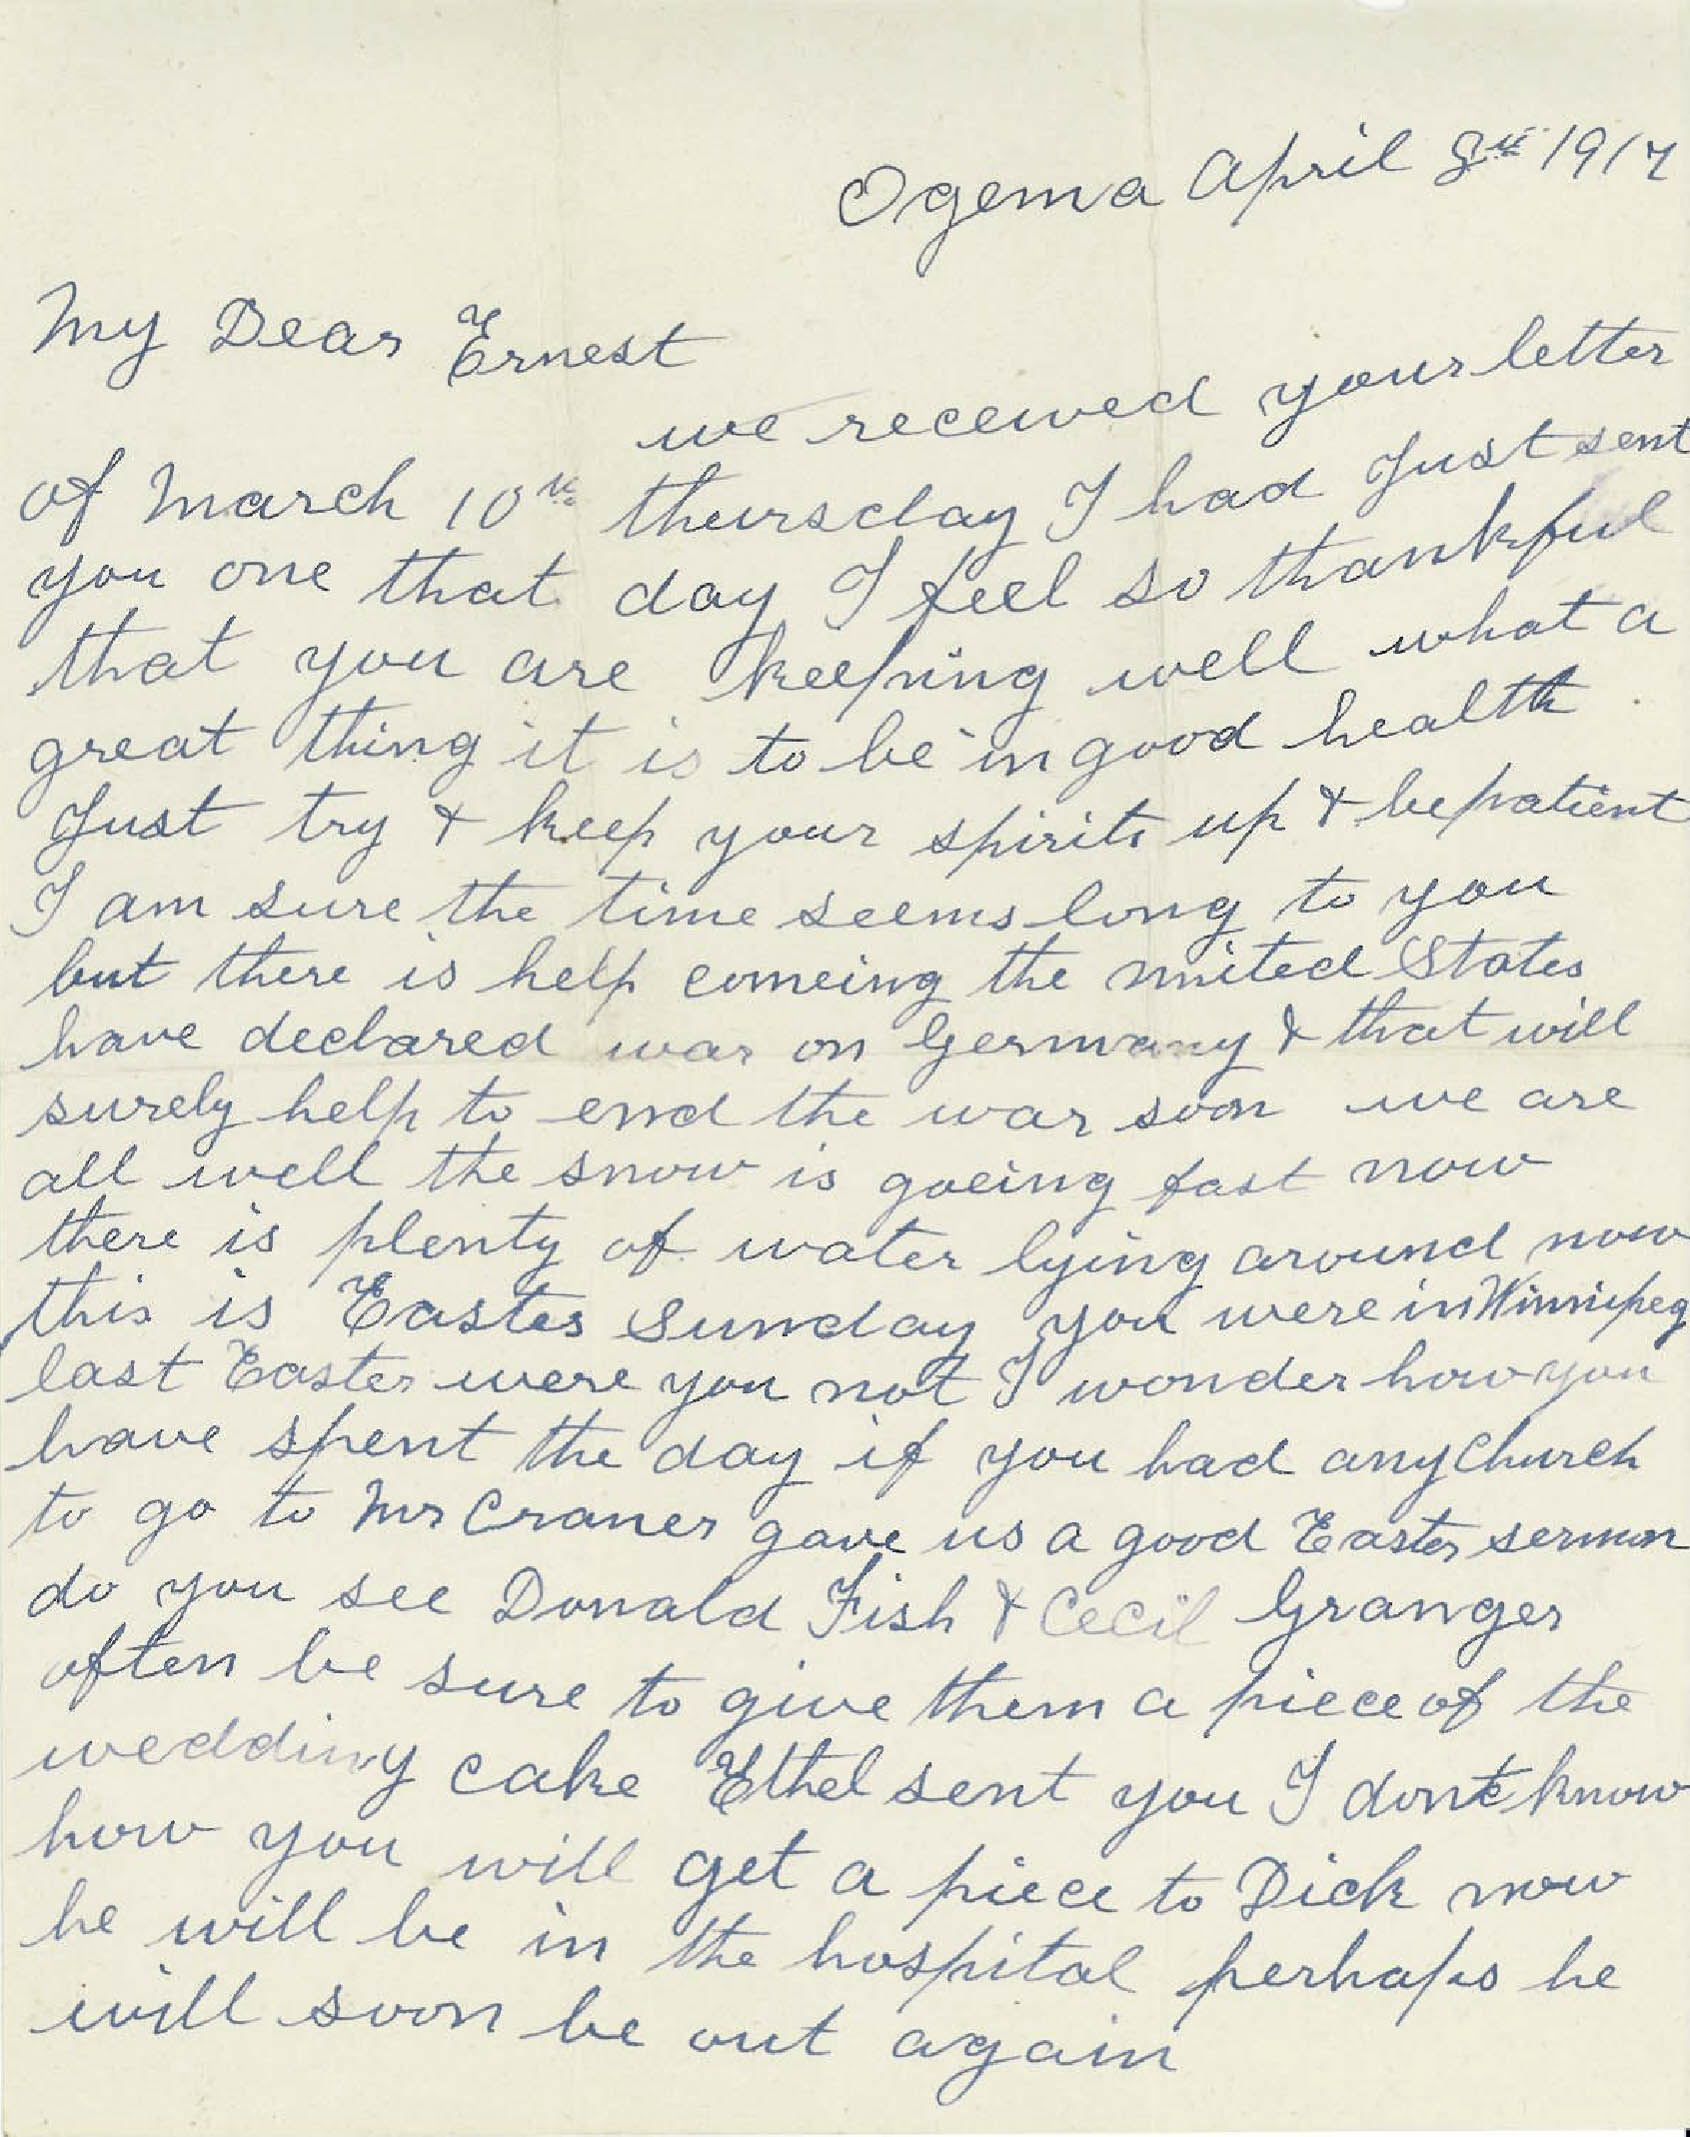 Ogema April 8th 1917
My Dear Ernest
we received your letter
of March 10th thursday I had Just sent
you one that day I feel so thankful
that you are keeping well what a
great thing it is to be in good health
Just try & keep your spirits up & be patient
I am sure the time seems long to you
but there is help comeing the united States
have declared war on Germany & that will
surely help to end the war soon we are
all well the snow is goeing fast now
there is plenty of water lying around now
this is Easter Sunday you were in Winnipeg
last Easter were you not I wonder how you
have spent the day if you had any church
to go to Mr Craner gave us a good Easter sermon
do you see Donald Fish & Cecil Granger
often be sure to give them a piece of the
wedding cake Ethel sent you I dont know
how you will get a piece to Dick now
he will be in the hospital perhaps he
will soon be out again